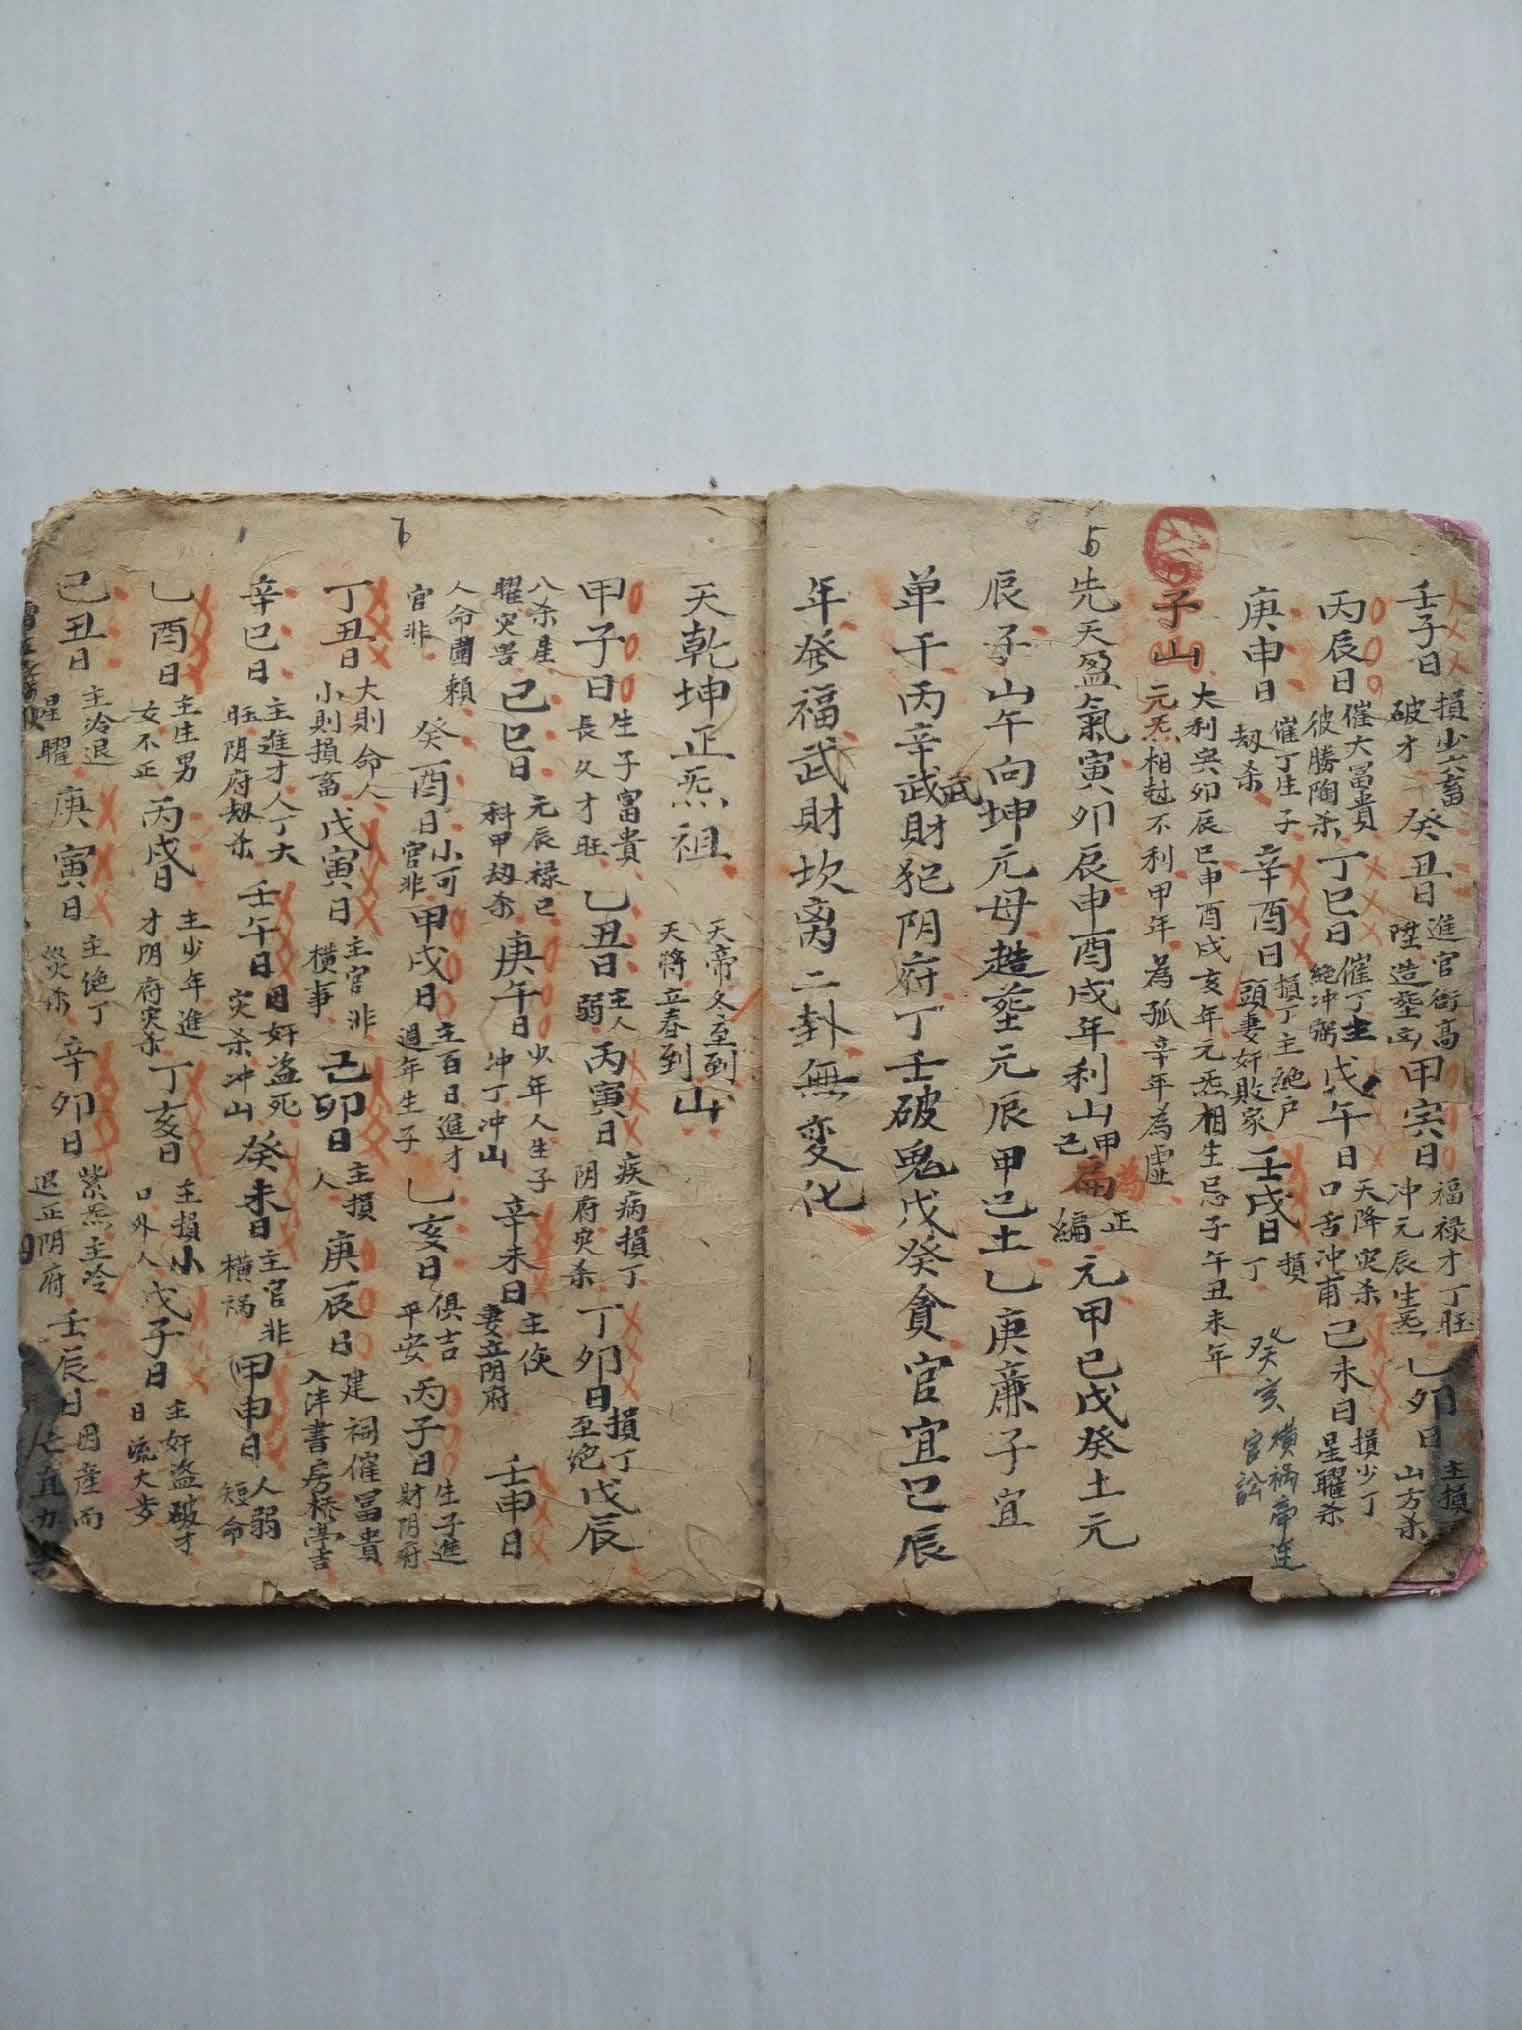 5
壬子日 損少六畜 破才 癸丑日 進官衔高 陞造塟凶 甲寅日 福禄才丁旺 冲元辰生炁 乙卯日 主損 山方杀
丙辰日 催大冨貴 彼勝陶杀 丁巳日 催丁主 絶冲弼 戊午日 天降灾杀 口舌冲甫 己未日 損少丁 星曜杀
庚申日 催丁生子 刼杀 辛酉日 損丁主絶户 頭妻奸敗家 壬戌日 損丁 癸亥 横祸帝 官訟
子山 大利與卯辰巳申酉戌亥年元炁相生忌子午丑未年
元炁相尅不利甲年為孤辛年為虚
先天盈氣寅卯辰申酉戌年利山甲己為正編元甲己戊癸土元
辰子山午向坤元母趙塟元辰甲己土乙庚亷子宜
单干丙辛武武財犯阴府丁壬破鬼戊癸貪官宜己辰
年癸福武財坎离二卦無変化
6
天乾坤正炁祖 天帝冬至到 天將立春到 山
甲子日 生子富貴 長久才旺 乙丑日 主人弱 丙寅日 疾病損丁 阴府灾杀 丁卯日 損丁 至绝 戊辰
八杀產 曜灾害 己巳日 元辰禄已 科甲刼杀 庚午日 少年人生子 冲丁冲山 辛未日 主 妻立阴府 壬申日
人命圖賴 官非 癸酉日 小可 官非 甲戌日 主百日進才 過年生子 乙亥日 俱吉 平安 丙子日 生子進 財阴府
丁丑日 大則命人 小則損畜 戊寅日 主官非 横事 己卯日 主損人 庚辰日 建祠催冨貴 入泮書房桥亭吉
辛巳日 主進才人丁大 旺阴府刼杀 壬午日 日奸盗死 灾杀冲山 癸未日 主官非 横祸 甲申日 人弱 短命
乙酉日 主庄男 女不正 丙戌日 主少年進 才阴府灾杀 丁亥日 主損小 口外人 戊子日 主奸盗破才 日流大步
己丑日 主冷退 星曜 庚寅日 主绝丁 災杀 辛卯日 紫炁主冷 退正阴府 壬辰日 因產而